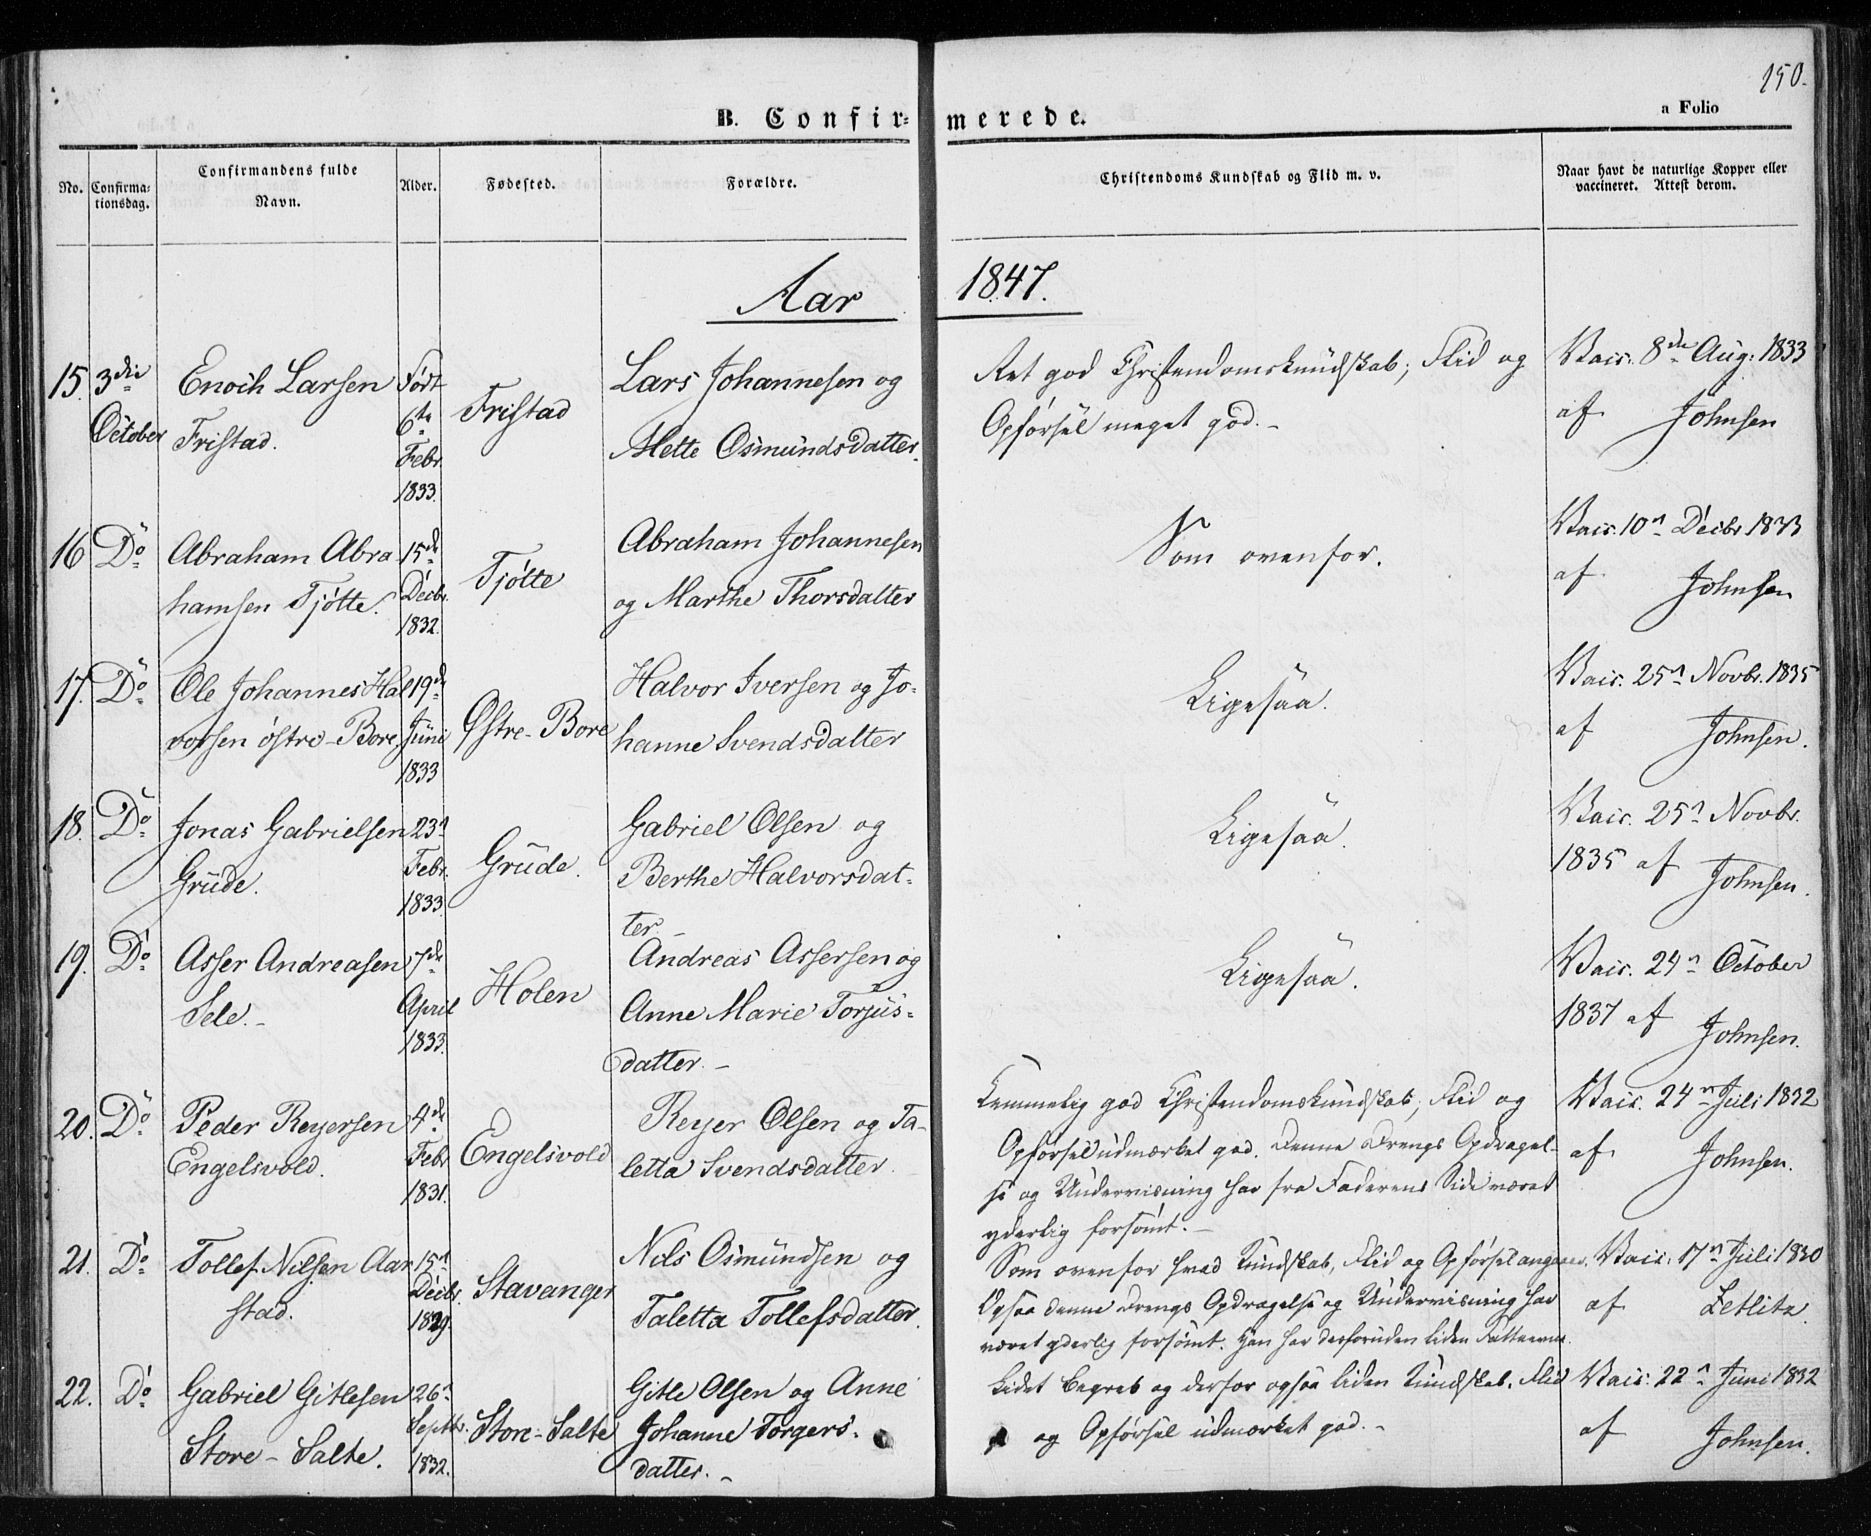 150.
B. Confirmerede.
a Folio
No.
Confirmationsdag.
Confirmandens fulde Navn.
Alder.
Fødested.
Forældre.
Christendoms Kundskab og Flid m. v.
Naar havt de naturlige Kopper eller
vaccineret. Attest derom.
Aar 1847.
15. 3die October
Enoch Larsen
Fristad.
Født 6te Febr. 1833.
Fristad
Lars Johannesen og
Mette Osmundsdatter.
Ret god Christendomskundskab; Flid og
Opførsel meget god. -
Vacc. 8de Aug: 1833
af Johnsen
16 Do
Abraham Abra
hamsen Tjøtte.
15de Decbr. 1832.
Tjøtte
Abraham Johannesen
og Marthe Thorsdatter
Som ovenfor.
Vacc. 10n Decbr 1833
af Johnsen
17. Do
Ole Johannes Hal
vorsen østre-Bore
19de Juni 1833
Østre-Bore
Halvor Iversen og Jo-
hanne Svendsdatter
Ligesaa.
Vacc. 25n Novbr. 1835
af Johnsen.
18. Do
Jonas Gabrielsen
Grude.
23n Febr. 1833
Grude.
Gabriel Olsen og
Berthe Halvorsdat-
ter -
Ligesaa.
Vacc. 25n Novbr.
1835 af Johnsen.
19. Do
Asser Andreasen
Sele. -
7de April 1833.
Holen
Andreas Assersen og
Anne Marie Torjus-
datter. -
Ligesaa.
Vacc. 24n October
1837 af Johnsen.
20. Do
Peder Reyersen
Engelsvold.
4de Febr 1831.
Engelsvold
Reyer Olsen og Ta-
letta Svendsdatter.
Temmelig god Christendomskundskab; Flid og
Opførsel udmærket god. Denne Drengs Opdragel-
se og Undervisning har fra Faderens Side været
yderlig forsømt. -
Vacc. 24n Juli 1832
af Johnsen.
21. Do
Tollef Nilsen Aar
stad.
15n Decbr. 1829.
Stavanger
Nils Osmundsen og
Taletta Tollefsdatter.
Som ovenfor hvad Kundskab, Flid og Opførsel angaaer.
Ogsaa denne Drengs Opdragelse og Undervisning har
været yderlig forsømt. Han har desforuden liden Fatteevne.
Vacc. 17n Juli 1830
af Zetlitz.
22. Do
Gabriel Gitlesen
Store-Salte.
26n Septbr. 1832.
Store-Salte
Gitle Olsen og Anne
Johanne Torgers-
datter. -
Lidet Begreb og derfor ogsaa liden Kundskab. Flid
og Opførsel udmærket god. -
Vacc. 22n Juni 1832
af Johnsen.